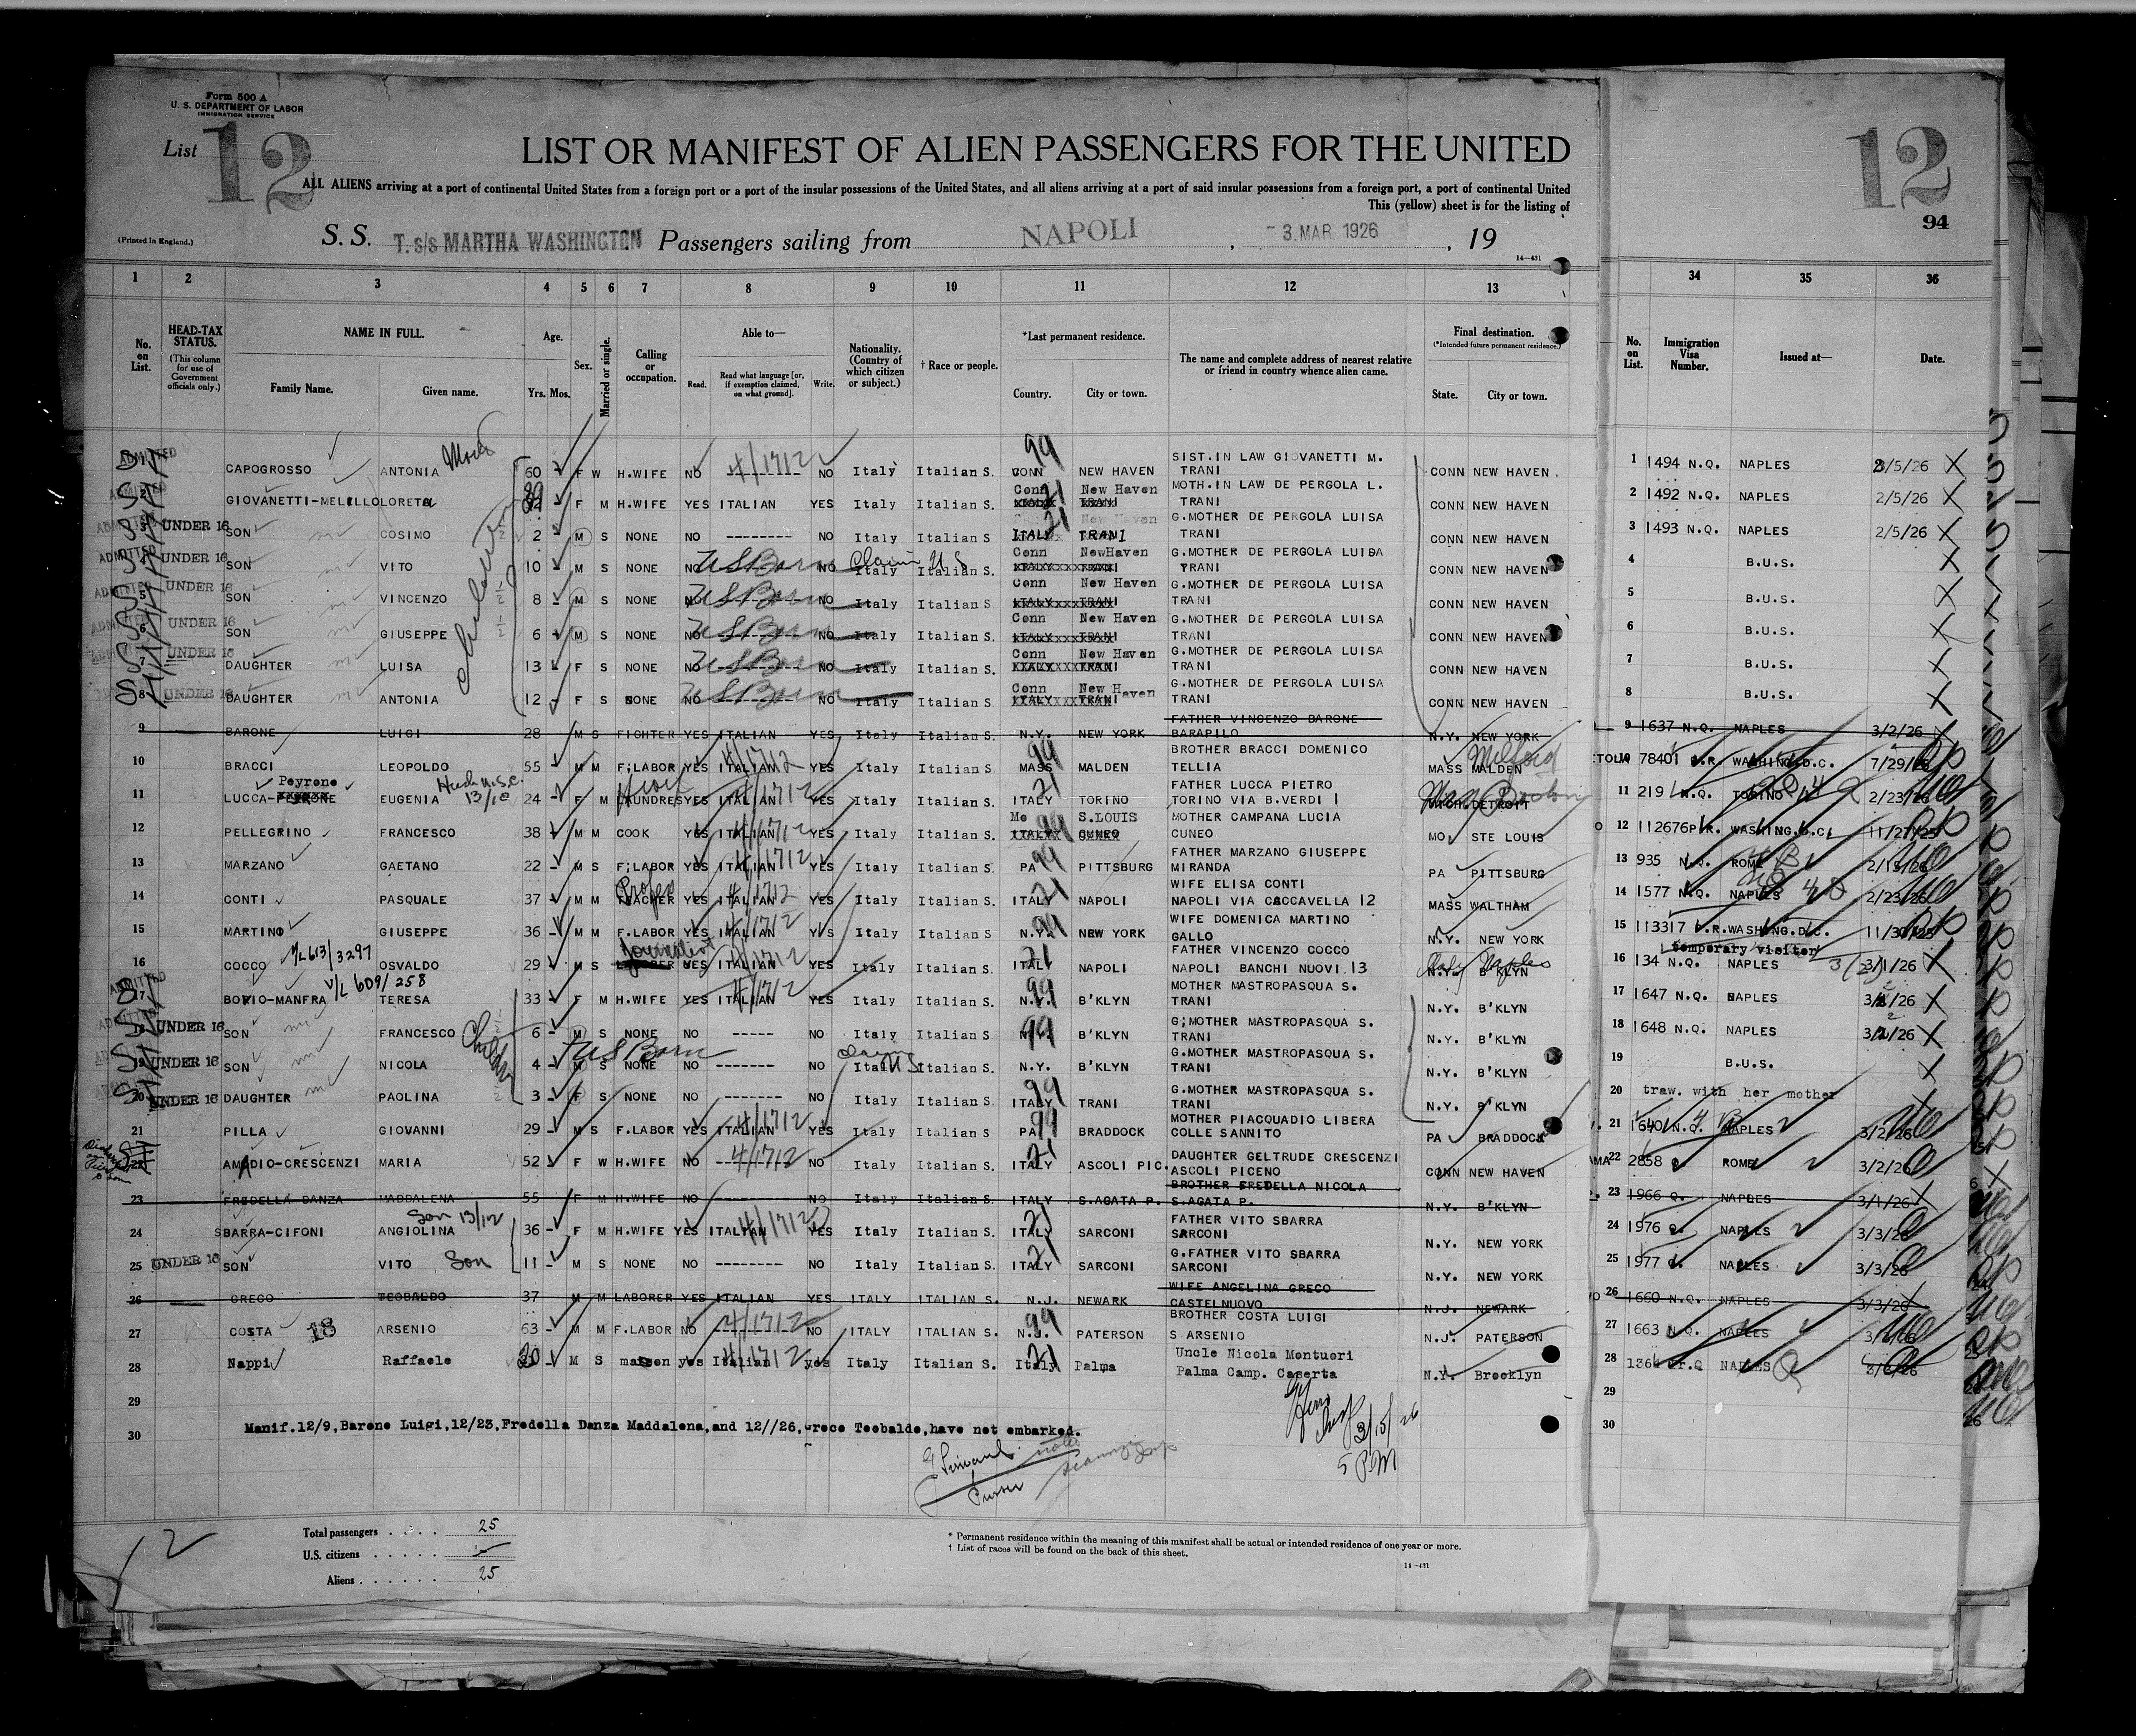 Form 500 A
U. S. DEPARTMENT OF LABOR
IMMIGRATION SERVICE
List 12
12
94
LIST OR MANIFEST OF ALIEN PASSENGERS FOR THE UNITED
ALL ALIENS arriving at a port of continental United States from a foreign port or a port of the insular possessions of the United States, and all aliens arriving at a port of said insular possessions from a foreign port, a port of continental United
This (yellow) sheet is for the listing of
(Printed in England.)
S. S. T. s/s MARTHA WASHINGTON Passengers sailing from NAPOLI , 3. MAR. 1926 , 19
14—431
1 2 3 4 5 6 7 8 9 10 11 12 13 34 35 36
No. on List.
HEAD-TAX STATUS.
(This column for use of Government officials only.)
NAME IN FULL.
Family Name. Given name.
Age.
Yrs. Mos.
Sex.
Married or single.
Calling or occupation.
Able to—
Read. Read what language [or, if exemption claimed, on what ground]. Write.
Nationality. (Country of which citizen or subject.)
† Race or people.
*Last permanent residence.
Country. City or town.
The name and complete address of nearest relative or friend in country whence alien came.
Final destination.
(*Intended future permanent residence.)
State. City or town.
No. on List.
Immigration Visa Number.
Issued at—
Date.
CAPOGROSSO ANTONIA 60 F W H.WIFE NO 4/1712 NO Italy Italian S. CONN 99 NEW HAVEN SIST. IN LAW GIOVANETTI M. TRANI CONN NEW HAVEN 1 1494 N.Q. NAPLES 2/5/26 X
2 GIOVANETTI-MELILLO LORETA F M H.WIFE YES ITALIAN YES Italy Italian S. Conn 21 New Haven ITALY TRANI MOTH. IN LAW DE PERGOLA L. TRANI CONN NEW HAVEN 2 1492 N.Q. NAPLES 2/5/26 X
3 UNDER 16 SON COSIMO 2 M S NONE NO -------- NO Italy Italian S. 21 New Haven ITALY TRANI G.MOTHER DE PERGOLA LUISA TRANI CONN NEW HAVEN 3 1493 N.Q. NAPLES 2/5/26 X
ADMITTED UNDER 16 SON VITO 10 M S NONE NO US Born NO Claim U S Italy Italian S. Conn NewHaven G.MOTHER DE PERGOLA LUISA TRANI CONN NEW HAVEN 4 B.U.S. X
5 UNDER 16 SON VINCENZO 8 M S NONE NO US Born NO Italy Italian S Conn New Haven ITALY TRANI G.MOTHER DE PERGOLA LUISA TRANI CONN NEW HAVEN 5 B.U.S. X
6 UNDER 16 SON GIUSEPPE 6 M S NONE NO US Born NO Italy Italian S. Conn New Haven ITALY TRANI G.MOTHER DE PERGOLA LUISA TRANI CONN NEW HAVEN 6 B.U.S. X
UNDER 16 DAUGHTER LUISA 13 F S NONE NO US Born NO Italy Italian S. Conn New Haven ITALY TRANI G.MOTHER DE PERGOLA LUISA TRANI CONN NEW HAVEN 7 B.U.S. X
8 UNDER 16 DAUGHTER ANTONIA 12 F S NONE NO US Born NO Italy Italian S. Conn New Haven ITALY TRANI G.MOTHER DE PERGOLA LUISA TRANI CONN NEW HAVEN 8 B.U.S. X
9 BARONE LUIGI 28 M S FIGHTER YES ITALIAN YES Italy Italian S. N.Y. NEW YORK FATHER VINCENZO BARONE BARAPILO N.Y. NEW YORK 9 1637 N.Q. NAPLES 3/2/26
10 BRACCI LEOPOLDO 55 M M F;LABOR YES ITALIAN 4/1712 YES Italy Italian S. MASS 99 MALDEN BROTHER BRACCI DOMENICO TELLIA MASS MALDEN Milford 10 78401 P.R. WASHING.D.C. 7/29/25
11 LUCCA-PEYRONE Peyrone EUGENIA 13/18 24 F M LAUNDRES YES ITALIAN 4/1712 YES Italy Italian S. ITALY 21 TORINO FATHER LUCCA PIETRO TORINO VIA B.VERDI 1 MICH. DETROIT 11 219 N.Q. TORINO 2/23/26
12 PELLEGRINO FRANCESCO 38 M M COOK YES ITALIAN 4/1712 YES Italy Italian S. Mo S.LOUIS ITALY 99 CUNEO MOTHER CAMPANA LUCIA CUNEO MO. STE LOUIS 12 112676 P.R. WASHING.D.C. 11/27/25
13 MARZANO GAETANO 22 M S F;LABOR YES ITALIAN 4/1712 YES Italy Italian S. PA 99 PITTSBURG FATHER MARZANO GIUSEPPE MIRANDA PA PITTSBURG 13 935 N.Q. ROME 2/15/26
14 CONTI PASQUALE 37 M M Profes TEACHER YES ITALIAN 4/1712 YES Italy Italian S. ITALY 21 NAPOLI WIFE ELISA CONTI NAPOLI VIA CACCAVELLA 12 MASS WALTHAM 14 1577 N.Q. NAPLES 2/23/26
15 MARTINO GIUSEPPE 36 M M F.LABOR YES ITALIAN 4/1712 YES Italy Italian S N.Y. 99 NEW YORK WIFE DOMENICA MARTINO GALLO N.Y. NEW YORK 15 113317 P.R. WASHING.D.C. 11/30/25
16 COCCO V/L 613/3297 OSVALDO 29 M S Journalist YES ITALIAN 4/1712 YES Italy Italian S. ITALY 21 NAPOLI FATHER VINCENZO COCCO NAPOLI BANCHI NUOVI 13 Italy Naples N.Y. B'KLYN 16 134 N.Q. temporary visitor NAPLES 3/1/26 X
17 BOVIO-MANFRA V/L 609/258 TERESA 33 F M H.WIFE YES ITALIAN 4/1712 YES Italy Italian S. N.Y. 99 B'KLYN MOTHER MASTROPASQUA S. TRANI N.Y. B'KLYN 17 1647 N.Q. NAPLES 3/2/26 X
18 UNDER 16 SON FRANCESCO 6 M S NONE NO ----- NO Italy Italian S. N.Y. 99 B'KLYN G;MOTHER MASTROPASQUA S. TRANI N.Y. B'KLYN 18 1648 N.Q. NAPLES 3/2/26 X
19 UNDER 16 SON NICOLA 4 M S NONE NO US Born NO Italy Italian S. N.Y. B'KLYN G.MOTHER MASTROPASQUA S. TRANI N.Y. B'KLYN 19 B.U.S. X
20 UNDER 16 DAUGHTER PAOLINA 3 F S NONE NO ------- NO Italy Italian S. ITALY 99 TRANI G.MOTHER MASTROPASQUA S. TRANI N.Y. B'KLYN 20 traw. with her mother X
21 PILLA GIOVANNI 29 M S F.LABOR YES ITALIAN 4/1712 YES Italy Italian S PA 99 BRADDOCK MOTHER PIACQUADIO LIBERA COLLE SANNITO PA BRADDOCK 21 1640 N.Q. NAPLES 3/2/26
22 AMADIO-CRESCENZI MARIA 52 F W H.WIFE NO 4/1712 NO Italy Italian S. ITALY 21 ASCOLI PIC. DAUGHTER GELTRUDE CRESCENZI ASCOLI PICENO CONN NEW HAVEN 22 2858 Q. ROME 3/2/26
23 FREDELLA DANZA MADDALENA 55 F M H.WIFE NO NO Italy Italian S. ITALY S.AGATA P. BROTHER FREDELLA NICOLA S.AGATA P. N.Y. B'KLYN 23 1966 Q. NAPLES 3/1/26 X
24 SBARRA-CIFONI Son 13/12 ANGIOLINA 36 F M H.WIFE YES ITALIAN 4/1712 YES Italy Italian S. ITALY 21 SARCONI FATHER VITO SBARRA SARCONI N.Y. NEW YORK 24 1976 Q. NAPLES 3/3/26
25 UNDER 16 SON VITO Son 11 M S NONE NO -------- NO Italy Italian S. ITALY 21 SARCONI G.FATHER VITO SBARRA SARCONI N.Y. NEW YORK 25 1977 Q. NAPLES 3/3/26
26 GRECO TEOBALDO 37 M M LABORER YES ITALIAN YES ITALY ITALIAN S. N.J. NEWARK WIFE ANGELINA GRECO CASTELNUOVO N.J. NEWARK 26 1660 N.Q. NAPLES 3/3/26
27 COSTA 18 ARSENIO 63 M M F.LABOR NO 4/1712 NO ITALY ITALIAN S. N.J. 99 PATERSON BROTHER COSTA LUIGI S ARSENIO N.J. PATERSON 27 1663 N.Q. NAPLES
28 Nappi Raffaele 20 M S mason yes Italian 4/1712 yes Italy Italian S. Italy 21 Palma Uncle Nicola Montuori Palma Camp. Caserta N.Y. Brooklyn 28 NAPLES
29 29
30 30
Manif.12/9,Barone Luigi,12/23,Fredella Danza Maddalena,and 12//26,Greco Teobaldo,have not embarked.
Purser
3/15/26
5 PM
12
Total passengers . . . . 25
U.S. citizens . . . . .
Aliens . . . . . . 25
* Permanent residence within the meaning of this manifest shall be actual or intended residence of one year or more.
† List of races will be found on the back of this sheet.
14—431